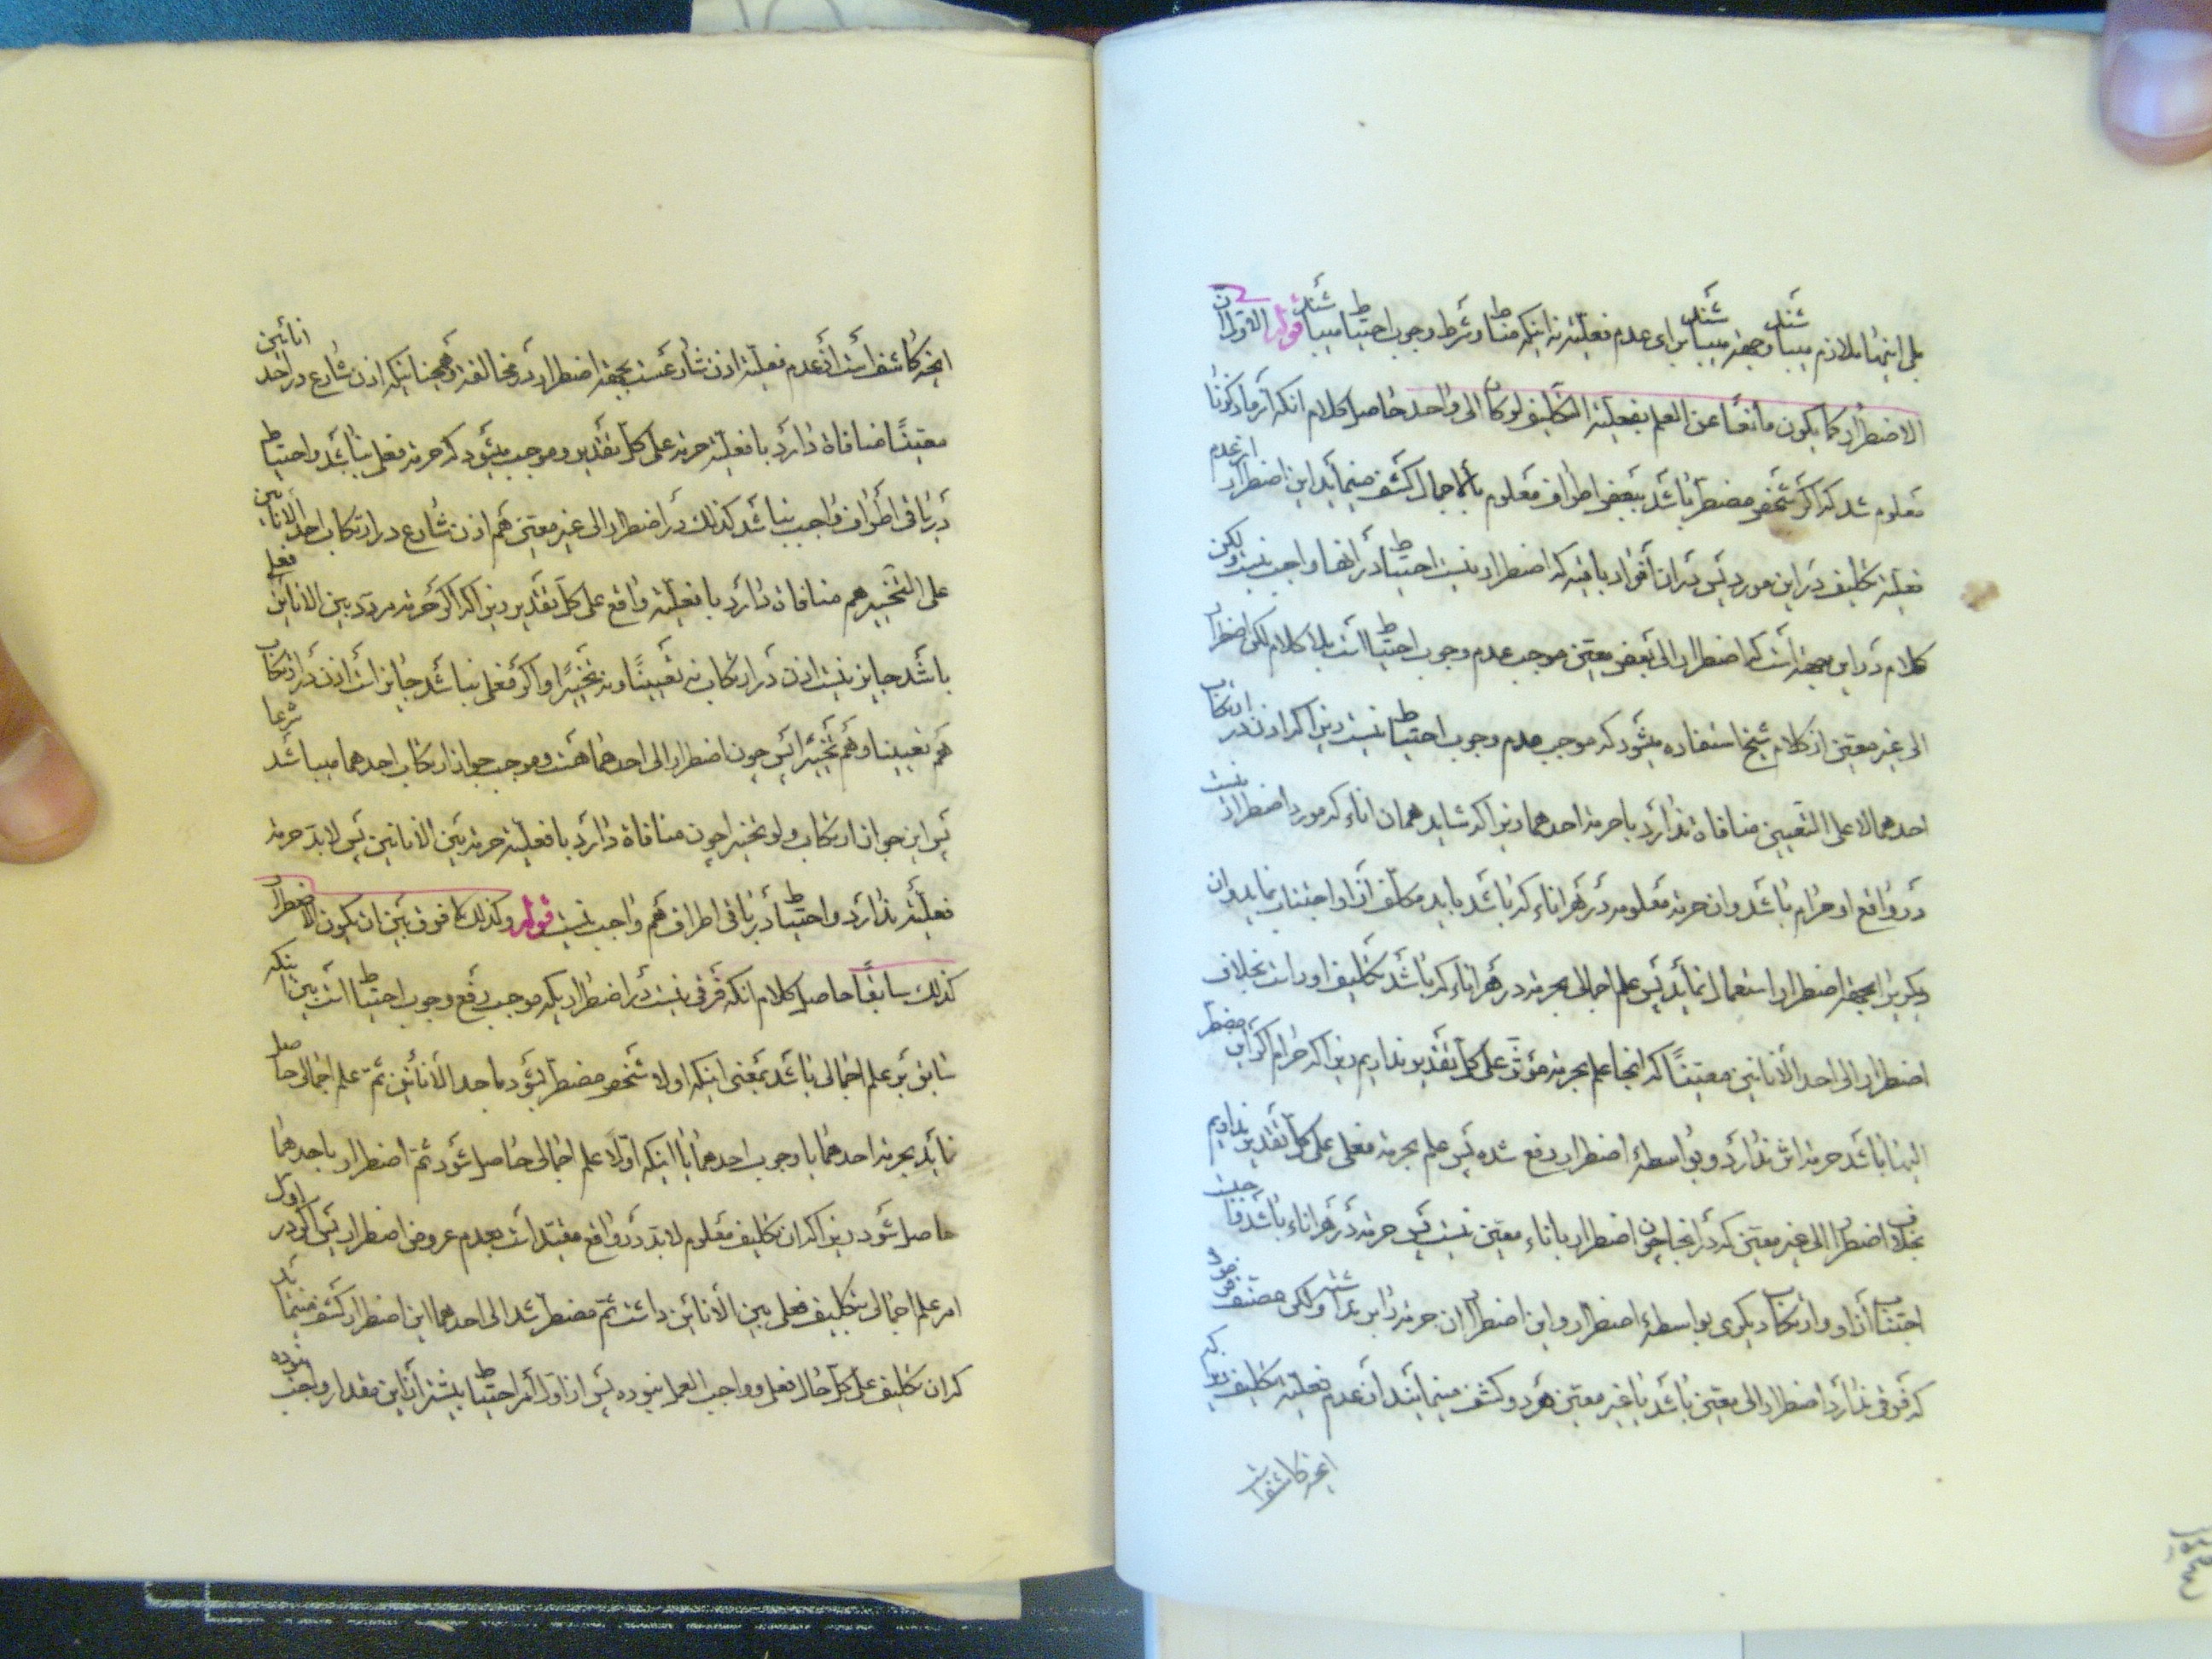 بلی اینها ملازم میباشند وجهة میباشند برای عدم فعلیة نه اینکه مناط وشرط وجوب احتیاط میباشند قوله الاول ان
الاضطرار کما یکون مانعًا عن العلم بفعلیة التکلیف لو کان الی واحد حاصل کلام انکه از ما ذکرنا
معلوم شد که اگر شخص مضطر باشد ببعض اطراف معلوم بالاجمال کشف مینماید این اضطرار از عدم
فعلیة تکلیف در این مورد پس در ان افراد باقیه که اضطرار نیست احتیاط در انها واجب نیست لکن
کلام در این جهة است که اضطرار الی بعض معین موجب عدم وجوب احتیاط است بلا کلام لکن اضطرار
الی غیر معین از کلام شیخ استفاده میشود که موجب عدم وجوب احتیاط نیست زیرا که اذن در ارتکاب
احدهما لا علی التعیین منافاة ندارد با حرمة احدهما زیرا که شاید همان اناء که مورد اضطرار نیست
در واقع او حرام باشد وان حرمة معلومه در هر اناء که باشد باید مکلف از او اجتناب نماید وان
دیگری را بجهة اضطرار استعمال نماید پس علم اجمالی بحرمة در هر اناء که باشد تکلیف اور است بخلاف
اضطرار الی احد الانائین معینًا که اینجا علم بحرمة مؤثر علی کل تقدیر نداریم زیرا که حرام اگر این مضطر
الیها باشد حرمة اش ندارد و بواسطهٔ اضطرار رفع شده پس علم بحرمة فعلی علی کل تقدیر نداریم
بخلاف اضطرار الی غیر معین که در اینجا چون اضطرار باناء معین نیست پس حرمة در هر اناء باشد
اجتناب از او وارتکاب دیگری بواسطهٔ اضطرار واین اضطرار ان حرمة را بر نداشته ولکن مصنف فرمود
که فرقی ندارد اضطرار الی معین باشد یا غیر معین هر دو کشف مینمایند از عدم فعلیة تکلیف زیرا که
انچه کاشف است
انچه کاشف است از عدم فعلیة اذن شارع است بجهة اضطرار در مخالفة وهمچنانیکه اذن شارع در احد انائین
معینًا منافاة دارد با فعلیة حرمة علی کل تقدیر وموجب میشود که حرمة فعلی نباشد واحتیاط
در باقی اطراف واجب نباشد کذلک در اضطرار الی غیر معین هم اذن شارع در ارتکاب احد الانائین
علی التخییر هم منافاة دارد با فعلیة واقع علی کل تقدیر زیرا که اگر حرمة مردد بین الانائین فعلی
باشد جایز نیست اذن در ارتکاب نه تعیینًا ونه تخییرًا واگر فعلی نباشد جایز است اذن در ارتکاب
هم تعیینا وهم تخییرا پس چون اضطرار الی احدهما هست وموجب جواز ارتکاب احدهما میباشد شرعا
پس این جواز ارتکاب ولو تخییرا چون منافاة دارد با فعلیة حرمة بین الانائین پس لابد حرمة
فعلیة ندارد واحتیاط در باقی اطراف هم واجب نیست قوله وکذلک لا فرق بین ان یکون الاضطرار
کذلک سابقًا حاصل کلام انکه فرقی نیست در اضطراریکه موجب رفع وجوب احتیاط است بین اینکه
سابق بر علم اجمالی باشد بمعنی اینکه اولا شخص مضطر بشود باحد الانائین ثم علم اجمالی حاصل
نماید بحرمة احدهما یا وجوب احدهما یا اینکه اولًا علم اجمالی حاصل شود ثم اضطرار باحدهما
حاصل شود زیرا که ان تکلیف معلوم لابد در واقع مقید است بعدم عروض اضطرار پس اگر در اول
امر علم اجمالی بتکلیف فعلی بین الانائین داشت ثم مضطر شد الی احدهما این اضطرار کشف مینماید
که ان تکلیف علی کل حال فعلی و واجب العمل نبوده پس از اول امر احتیاط بیشتر از این مقدار واجب نبوده